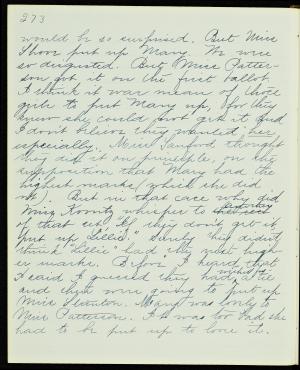 273
would be so surprised. But Miss
Thorn put up Mary. We were
so disgusted. But Miss Patter-
son got it on the first ballot.
I think it was mean of those
girls to put Mary up, for they
knew she could not get it and
I don't believe they wanted her
especially. Miss Sanford thought
they did it on principle, on the
supposition that Mary had the
highest marks, which she did
not. But in that case why did
Miss whisper to
at that end "If they don't get it
put up Allie." Surely they didn't
think "Allie" had the next high-
est marks. Before I heard that
I said I guessed they had wanted Allie
and they were going to put up
Miss Stanton. Mary was lovely to
Miss Patterson. It was too bad she
had to be put up to lose it.